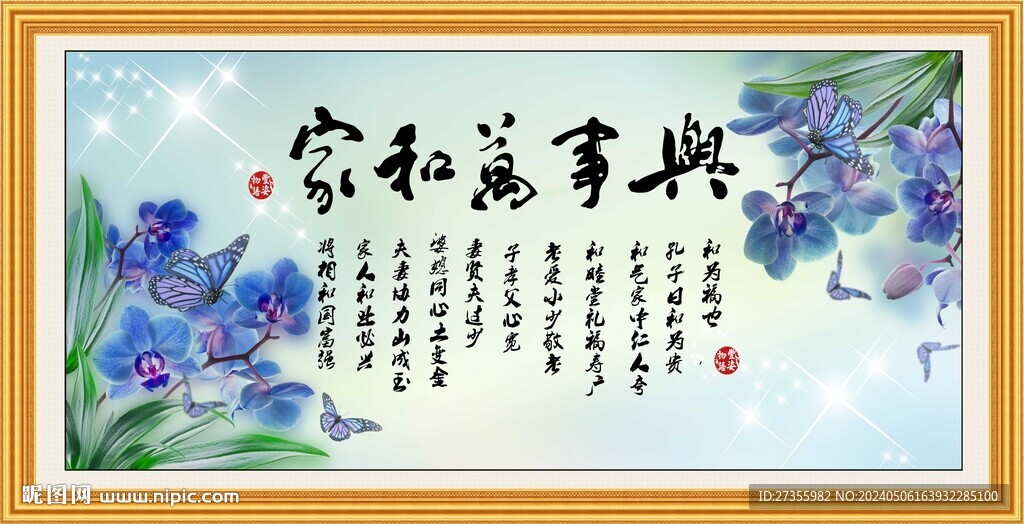 家和萬事興
和为福也
孔子曰和为贵
和气家中仁人夸
和睦堂礼福寿户
老爱小少敬老
子孝父心宽
妻贤夫过少
婆媳同心土变金
夫妻协力山成玉
家人和业必兴
将相和国富强
豐姿物語
豐姿物語
昵图网 www.nipic.com
ID:27355982 NO:20240506163932285100